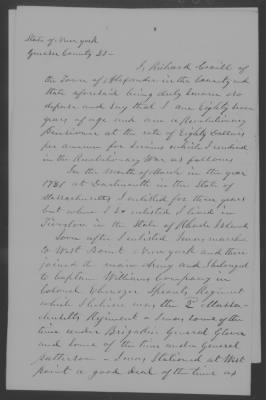 State of New York
Genesee County SS—
I, Richard Cavill of
the Town of Alexander in the County and
State aforesaid being duly sworn do
depose and say that I am Eighty Seven
years of age and am a Revolutionary
Pensioner at the rate of Eighty dollars
per annum for services which I rendered
in the Revolutionary War as follows
In the month of March in the year
1781 at Dartmouth in the State of
Massachusetts I enlisted for three years
but when I so enlisted I lived in
Tiverton in the State of Rhode Island
Soon after I enlisted I was marched
to West Point New York and there
joined the main Army and I belonged
to Captain Williams Company in
Colonel Ebenezer Sprouts Regiment
which I believe was the 2d Massa-
chusetts Regiment & I was some of the
time under Brigadier General Glover
and some of the time under General
Patterson - I was Stationed at West
point a good deal of the time as